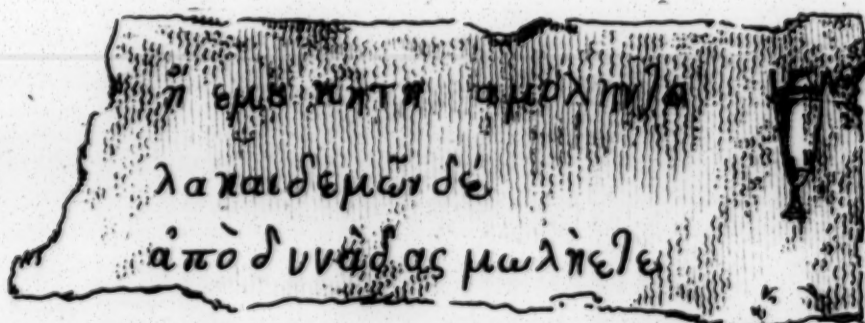 ἢ εμε κητη αμολητε
λακαιδεμῶν δέ
ἀπὸ δυνάδας μωλὴετε